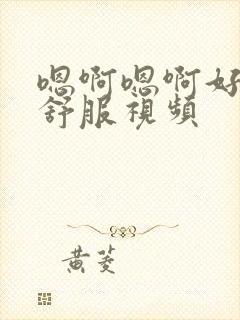 嗯啊嗯啊好
舒服視頻
黄菱